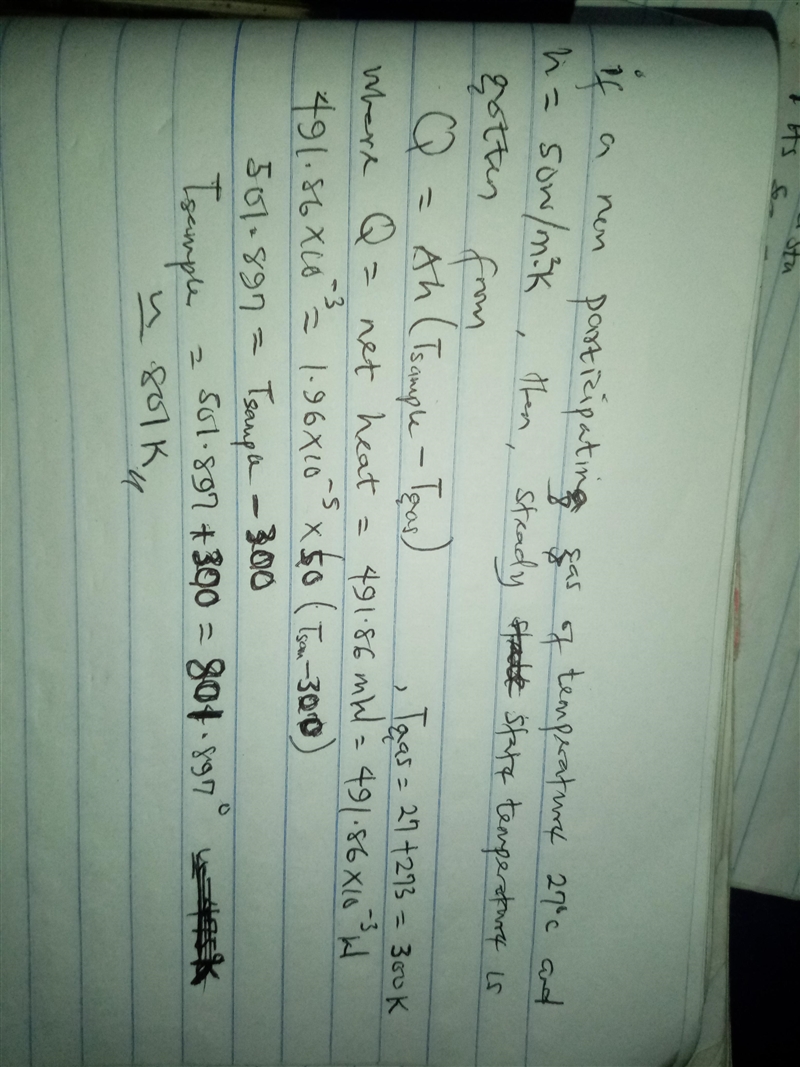 If a non participating gas of temperature 27°C and
h = 50W/m²K, then, steady state temperature is
gotten from
Q = Ah(Tsample - Tgas) , Tgas = 27+273 = 300K
where Q = net heat = 491.86 mW = 491.86×10⁻³W
491.86×10⁻³ = 1.96×10⁻⁵ × 50 (Tsam - 300)
501.897 = Tsample - 300
Tsample = 501.897 + 300 = 801.897°
≃ 801K